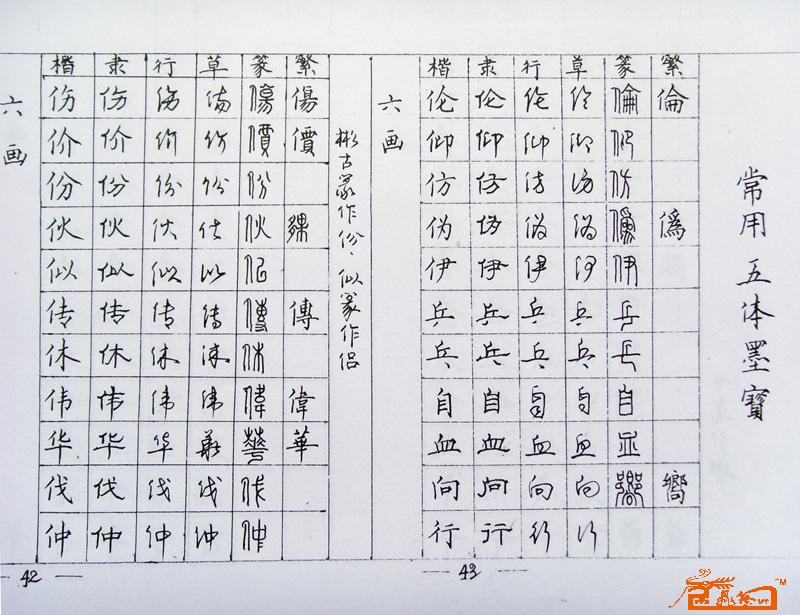 六画
楷 隶 行 草 篆 繁
伤 伤 伤 伤 傷 傷
价 价 价 价 價 價
份 份 份 份 份
伙 伙 伙 伙 伙 夥
似 似 似 似 佀
传 传 传 传 傳 傳
休 休 休 休 休
伟 伟 伟 伟 偉 偉
华 华 华 华 華 華
伐 伐 伐 伐 伐
仲 仲 仲 仲 仲
42
彬古篆作份、似篆作侣
六画
楷 隶 行 草 篆 繁
伦 伦 伦 伦 倫 倫
仰 仰 仰 仰 仰
仿 仿 仿 仿 仿
伪 伪 伪 伪 僞 僞
伊 伊 伊 伊 伊
乒 乒 乒 乒 乒
乓 乓 乓 乓 乓
自 自 自 自 自
血 血 血 血 血
向 向 向 向 嚮 嚮
行 行 行 行
43
常用五体墨寶